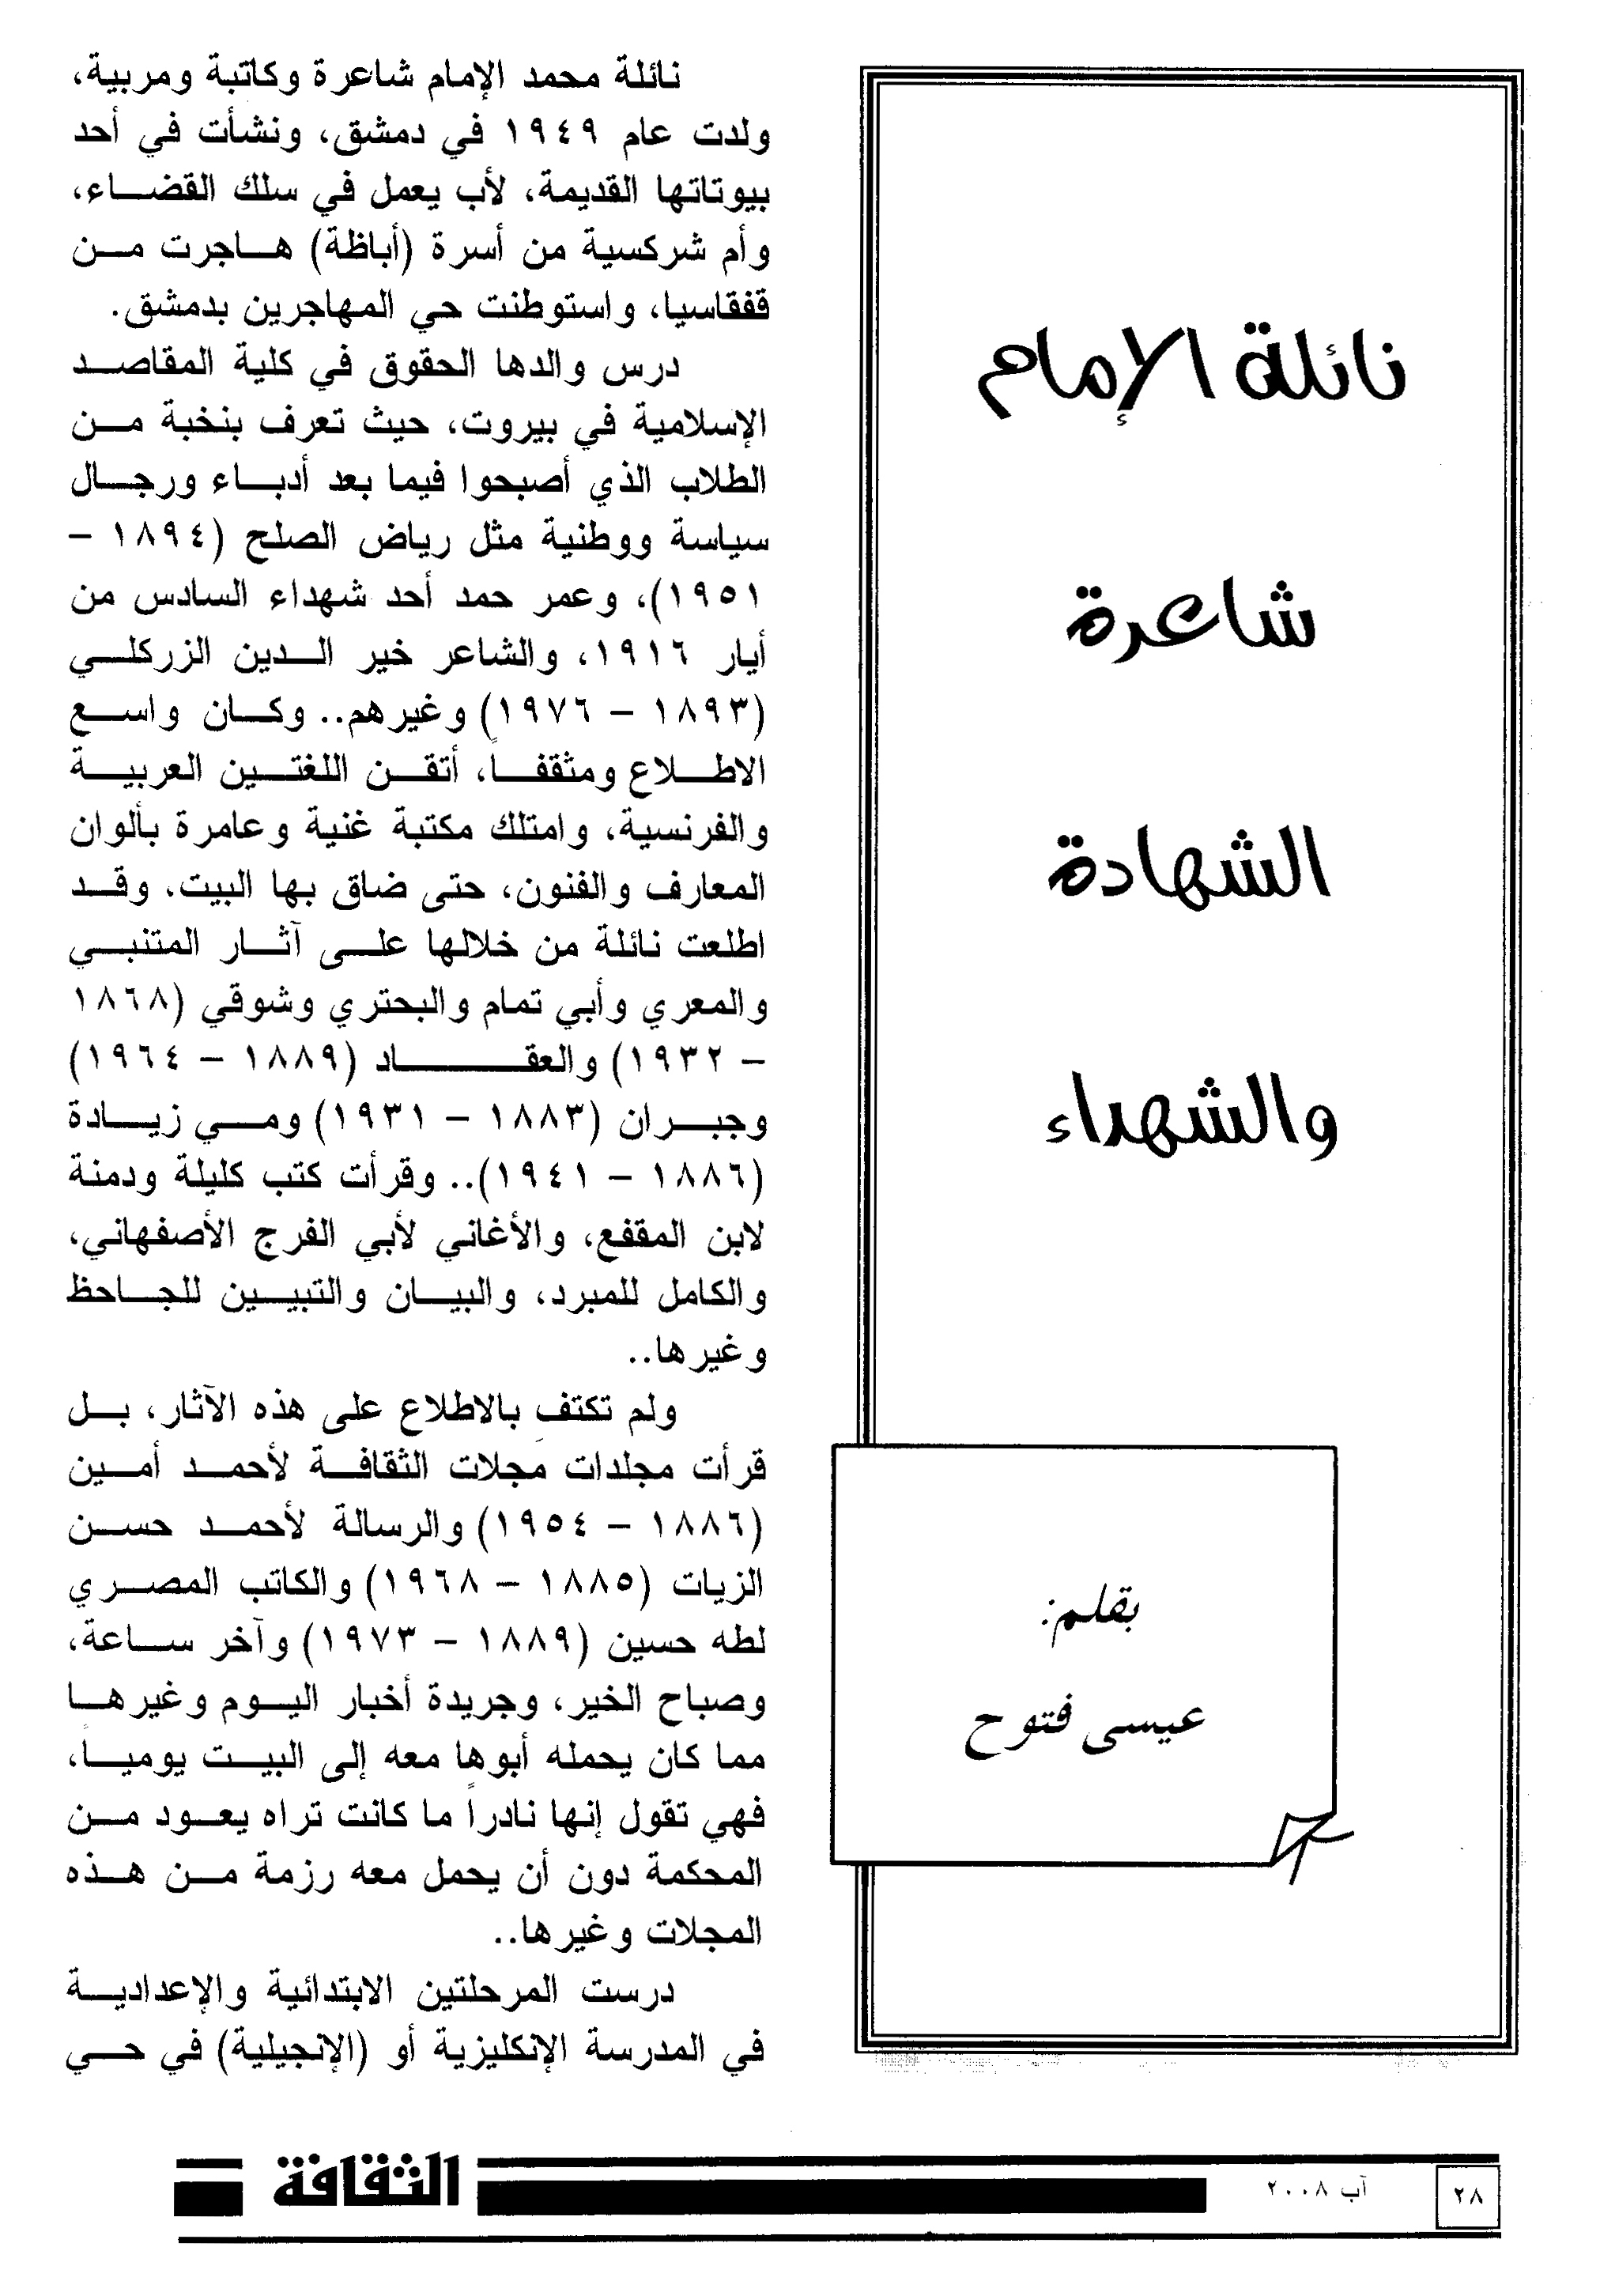 نائلة الإمام
شاعرة
الشهادة
والشهداء
بقلم:
عيسى فتوح
نائلة محمد الإمام شاعرة وكاتبة ومربية،
ولدت عام ١٩٤٩ في دمشق، ونشأت في أحد
بيوتاتها القديمة، لأب يعمل في سلك القضاء،
وأم شركسية من أسرة (أباظة) هاجرت من
قفقاسيا، واستوطنت حي المهاجرين بدمشق.
درس والدها الحقوق في كلية المقاصد
الإسلامية في بيروت، حيث تعرف بنخبة من
الطلاب الذي أصبحوا فيما بعد أدباء ورجال
سياسة ووطنية مثل رياض الصلح (١٨٩٤ –
١٩٥١)، وعمر حمد أحد شهداء السادس من
أيار ١٩١٦، والشاعر خير الدين الزركلي
(١٨٩٣ – ١٩٧٦) وغيرهم.. وكان واسع
الاطلاع ومثقفاً، أتقن اللغتين العربية
والفرنسية، وامتلك مكتبة غنية وعامرة بألوان
المعارف والفنون، حتى ضاق بها البيت، وقد
اطلعت نائلة من خلالها على آثار المتنبي
والمعري وأبي تمام والبحتري وشوقي (١٨٦٨
– ١٩٣٢) والعقاد (١٨٨٩ – ١٩٦٤)
وجبران (١٨٨٣ – ١٩٣١) ومي زيادة
(١٨٨٦ – ١٩٤١).. وقرأت كتب كليلة ودمنة
لابن المقفع، والأغاني لأبي الفرج الأصفهاني،
والكامل للمبرد، والبيان والتبيين للجاحظ
وغيرها..
ولم تكتفِ بالاطلاع على هذه الآثار، بل
قرأت مجلدات مجلات الثقافة لأحمد أمين
(١٨٨٦ – ١٩٥٤) والرسالة لأحمد حسن
الزيات (١٨٨٥ – ١٩٦٨) والكاتب المصري
لطه حسين (١٨٨٩ – ١٩٧٣) وآخر ساعة،
وصباح الخير، وجريدة أخبار اليوم وغيرها
مما كان يحمله أبوها معه إلى البيت يومياً،
فهي تقول إنها نادراً ما كانت تراه يعود من
المحكمة دون أن يحمل معه رزمة من هذه
المجلات وغيرها..
درست المرحلتين الابتدائية والإعدادية
في المدرسة الإنكليزية أو (الإنجيلية) في حي
٢٨
آب ٢٠٠٨
الثقافة